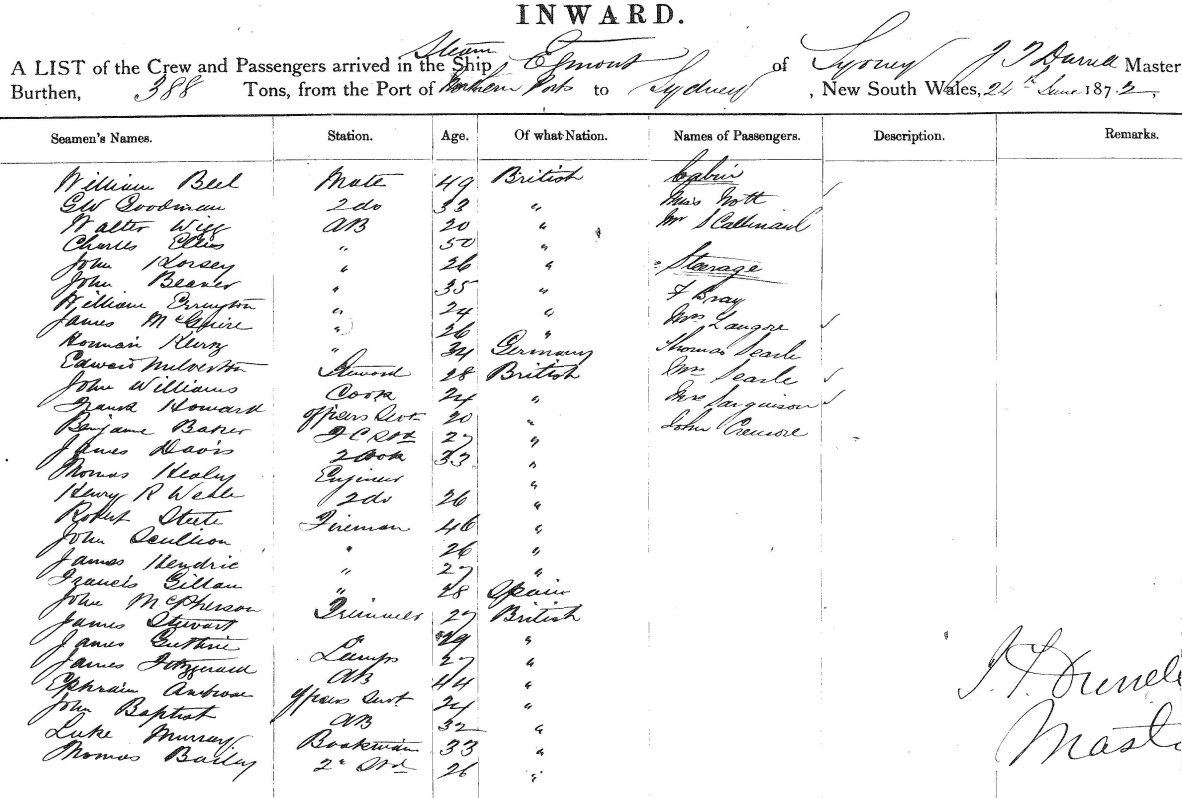 INWARD.
A LIST of the Crew and Passengers arrived in the Steam Ship Egmont of Sydney J T Darrell Master
Burthen, 388 Tons, from the Port of Northern Ports to Sydney, New South Wales, 24th June 1872,
Seamen's Names. Station. Age. Of what Nation. Names of Passengers. Description. Remarks.
William Bell Mate 49 British Cabin
GW Goodman 2 do 33 " Miss Nott
Walter Wigg AB 20 " Mr S
Charles Ellis " 50 "
John Horsey " 26 " Steerage
John Beaver " 35 "
William Errington " 24 " F Bray
James McGuire " 26 " Mrs Langore
Herman " 34 Germany Thomas Searle
Edward Milverton Steward 28 British Mrs Searle
John Williams Cook 24 " Mrs
Frank Howard Officers Servt 20 " John
Benjamine Baker F C Std 27 "
James Davis 2 Cook 33 "
Thomas Healey Engineer "
Henry R 2 do 26 "
Robert Steele Fireman 46 "
John Scullion " 26 "
James Hendric " 27 "
Francis Gillan " 28 Spain
John McPherson Trimmer 27 British
James Stewart " 29 "
James Guthrie Lamps 27 "
James Fitzgerald AB 44 "
Ephraim Ambrose Officers Servt 24 "
John Baptist AB 32
Luke Murray Bookman 33 "
Thomas Bailey 2d Std 26 "